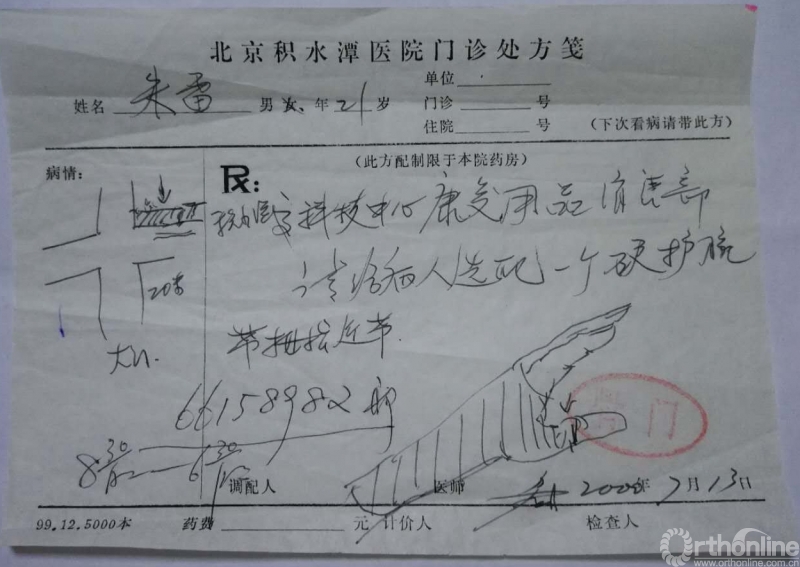 北京积水潭医院门诊处方笺
单位
姓名 朱雷 男女、年 21 岁 门诊 号
住院 号 (下次看病请带此方)
病情: (此方配制限于本院药房)
℞:
科技中心康复用品消售部
请给病人选配一个硬护腕
带拇指近节
大小
66158982
8:30 6:30
调配人 医师 2000年7月13日
99.12.5000本 药费 元 计价人 检查人
门
Orthonline
www.orthonline.com.cn